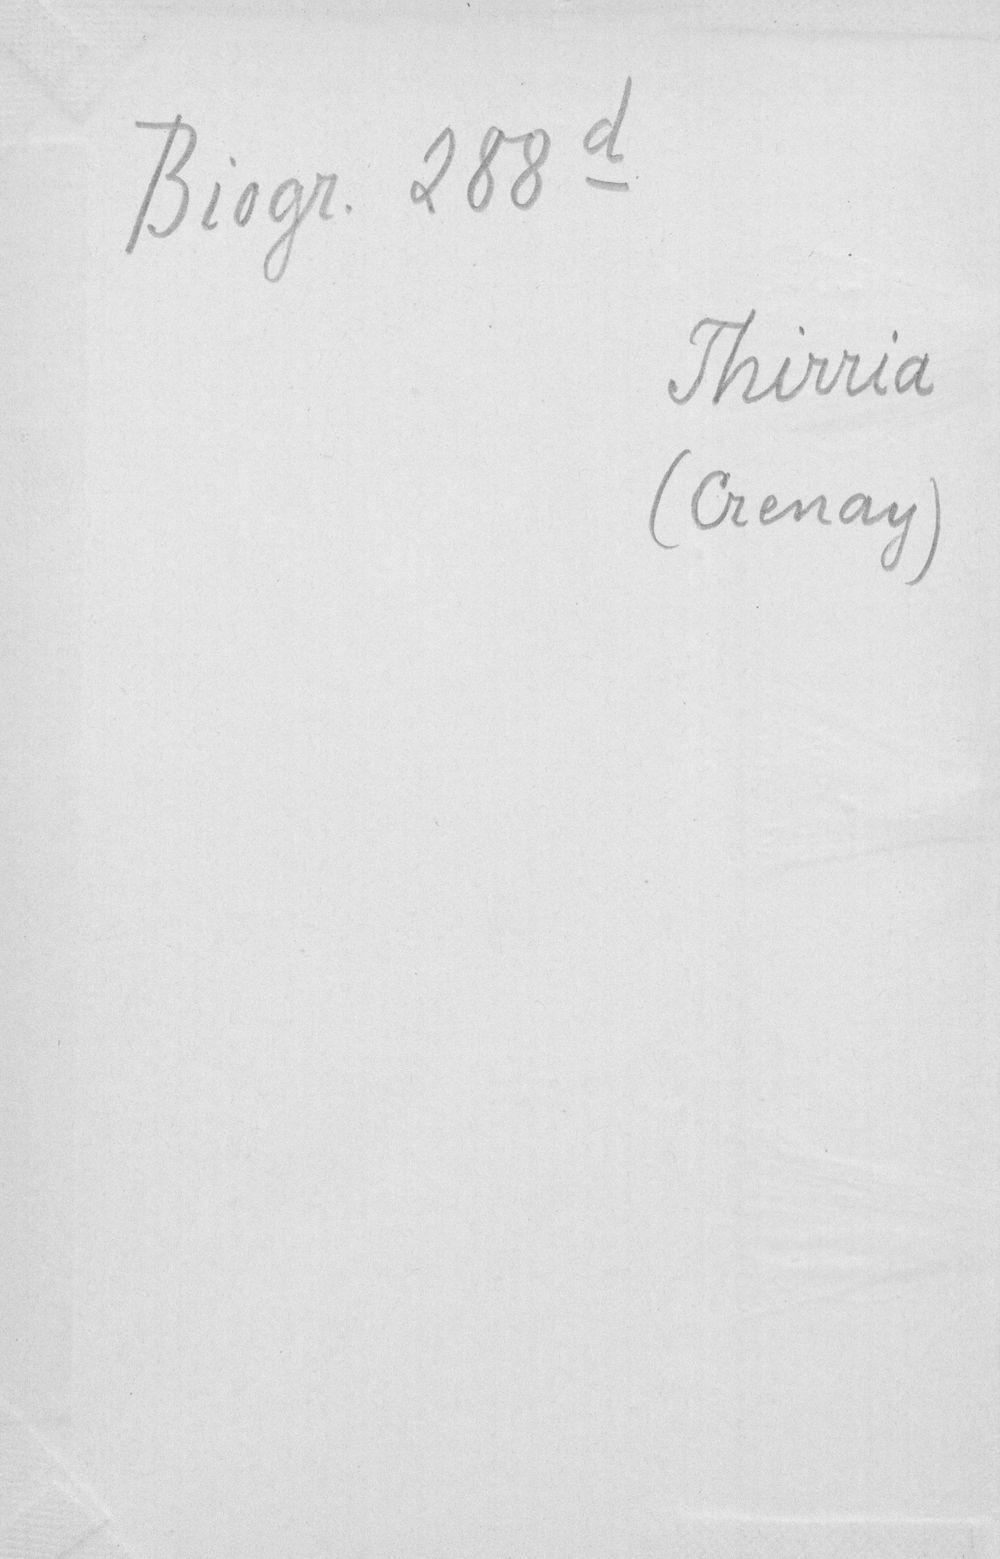 Biogr. 288 d
Thirria
(Crenay)